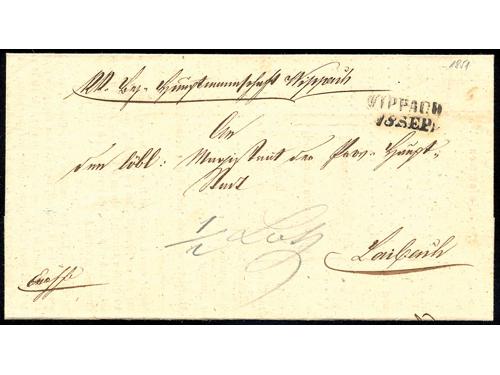 1851
KK. Bez. Hauptmannschaft Wippach
WIPPACH
18. SEP.
An
den löbl: Magistrat der Prov. Haupt-
Stadt
Laibach